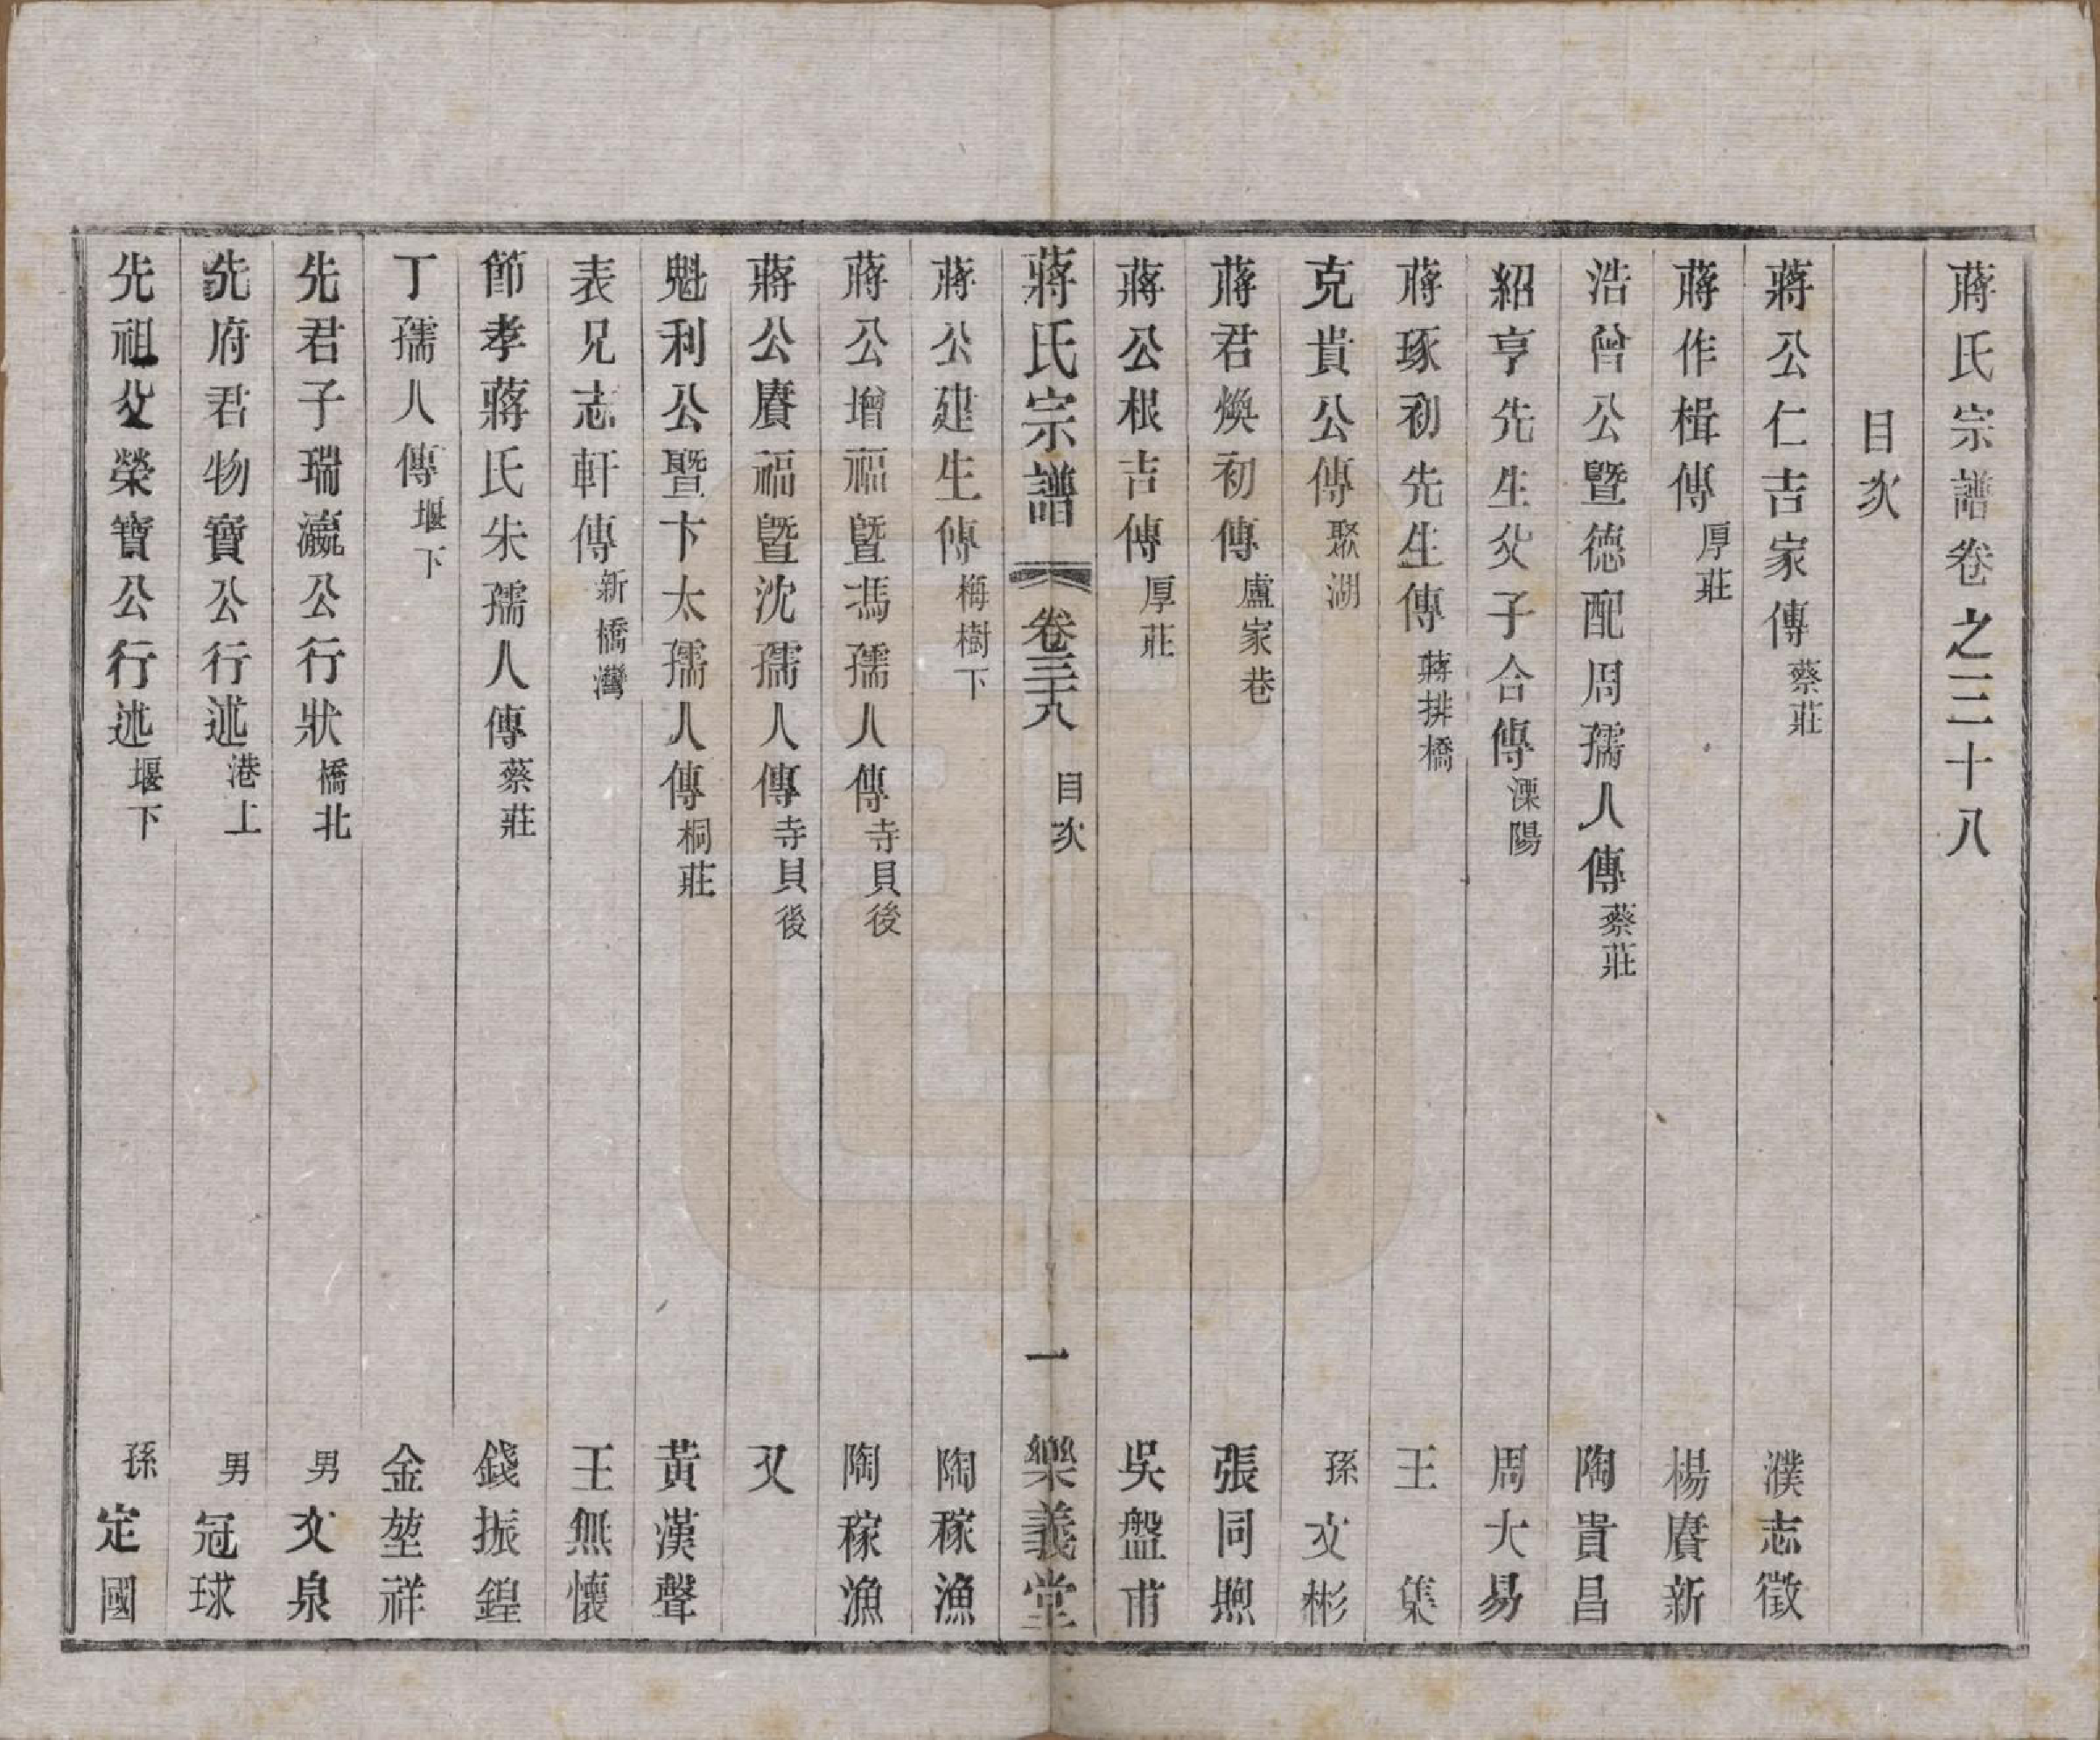 蔣氏宗譜卷之三十八
目次
蔣公仁吉家傳 蔡莊 濮志徵
蔣作楫傳 厚莊 楊賡新
浩曾公暨德配周孺人傳 蔡莊 陶貴昌
紹亨先生父子合傳 溧陽 周大易
蔣琢初先生傳 蔣排橋 王集
克貴公傳 聚湖 孫文彬
蔣君煥初傳 盧家巷 張同煦
蔣公根吉傳 厚莊 吳盤甫
蔣氏宗譜 卷三十八 目次 一 樂義堂
蔣公建生傳 梅樹下 陶稼漁
蔣公增福暨馮孺人傳 寺貝後 陶稼漁
蔣公賡福暨沈孺人傳 寺貝後 又
魁利公暨卞太孺人傳 桐莊 黃漢聲
表兄志軒傳 新橋灣 王無懷
節孝蔣氏朱孺人傳 蔡莊 錢振鍠
丁孺人傳 堰下 金堃祥
先君子瑞瀛公行狀 橋北 男文泉
先府君物寶公行述 港上 男冠球
先祖父榮寶公行述 堰下 孫定國